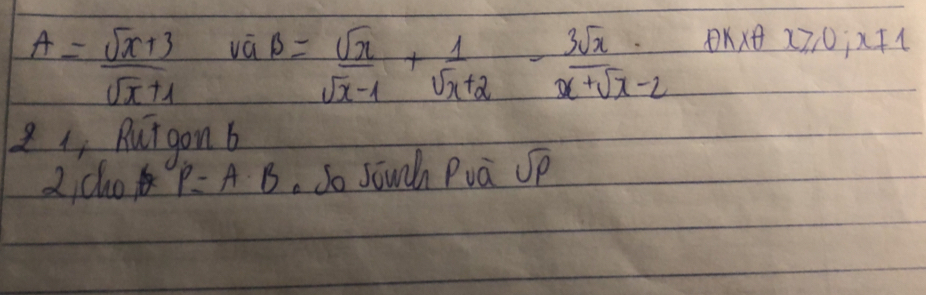 A = (√x+3)/(√x+1) và B = √x/(√x-1) + 1/(√x+2) - 3√x/(x+√x-2). ĐKXĐ x≥0; x≠1
2 1, Rút gọn b
2, cho P = A.B. So sánh P và √P